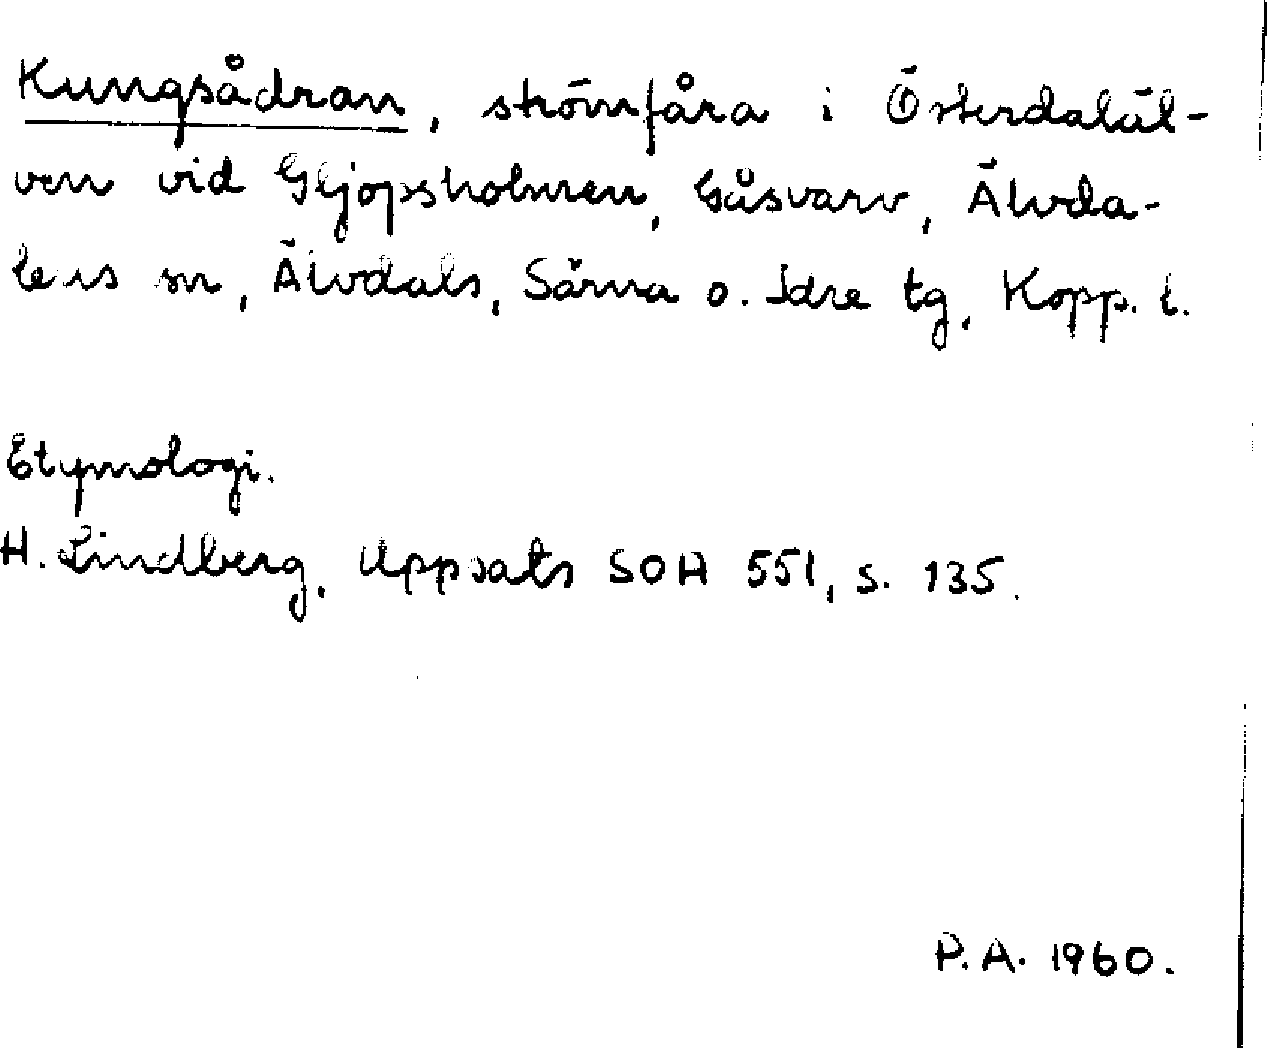 Kungsådran, strömfåra i Österdaläl-
ven vid Gljopsholmen, Gåsvarv, Älvda-
lens sn, Älvdals, Särna o. Idre tg, Kopp. l.
Etymologi.
H. Lindberg, Uppsats SOH 551, s. 135.
P.A. 1960.